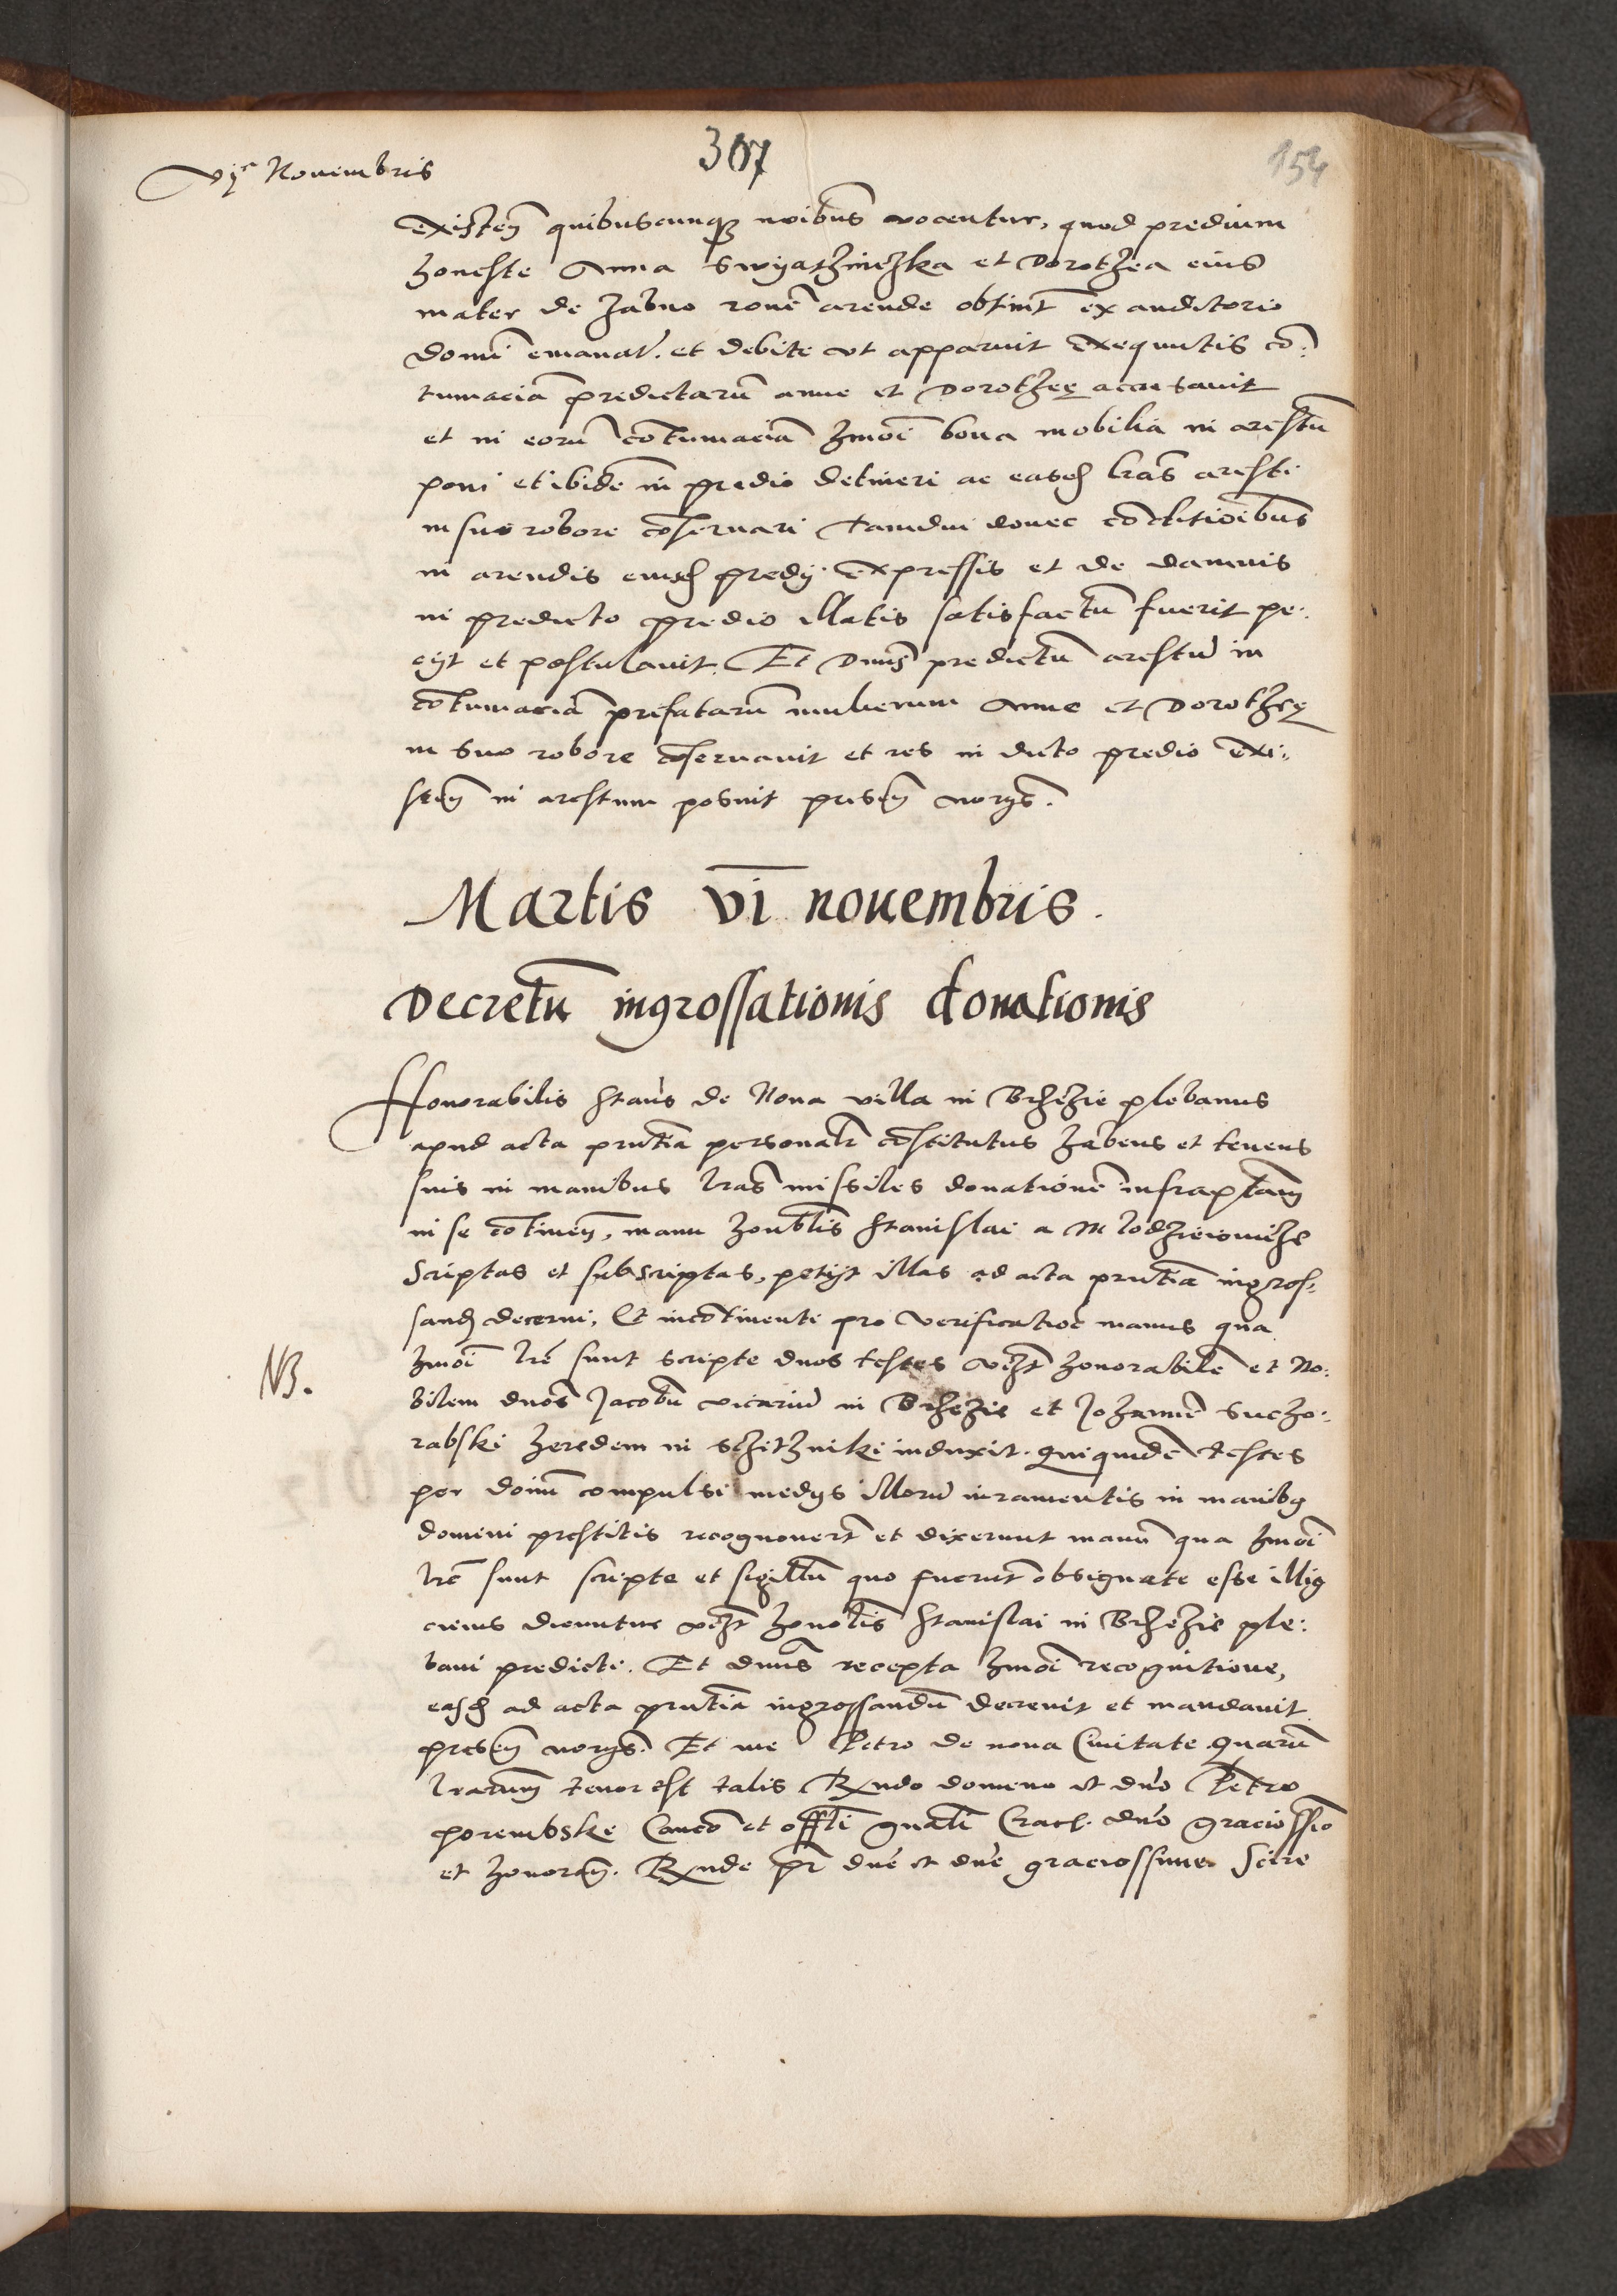 307
154
Vjᵃ Nouembris
existeñ quibuscunq̃ noibus vocentur, quod predium
honeste Anna Swyathniczka et Dorothea eius
mater de zabno rone arende obtint ex auditorio
domi emanat̃. et debite vt apparuit exequutis co:
tumaciã predictarũ anne et Dorotheę accusauit
et in eorũ cotumaciã hmoi bona mobilia in arestũ
poni et ibidẽ in predio detineri ac easd̃ lras aresti
in suo robore coseruari tamdiu donec coditioibus
in arendis eiusd̃ predij expressis et de damnis
in predicto predio illatis satisfactũ fuerit pe:
cijt et postulauit. Et Dnus predictũ arestũ in
cotumaciã prefatarũ mulierum Anne et Dorotheę
in suo robore coseruauit et res in dicto predio exi:
steñ in arestum posuit preseñ norys.
Martis vi nouembris.
Decretũ ingrossationis donationis
Honorabilis Staus de Noua villa in Brzezie plebanus
apud acta pñtia personalr costitutus habens et tenens
suis in manibus lras missiles donationẽ infraptam
in se cotineñ, manu honblis Stanislai a Mlodzieiowicze
scriptas et subscriptas, petijt illas ad acta pñtia ingros:
sand̃ decerni, Et incotinenti pro verificatioe manus qua
NB.
hmoi lre sunt scripte duos testes vczt honorabilẽ et No:
bilem dnos Jacobũ vicariũ in Brzezie et Johannẽ Sucho:
rabski heredem in Szczithniki induxit. Quiquidẽ testes
per doinũ compulsi medys illorũ iuramentis in manibq
domini prestitis recognouert et dixerunt manũ qua hmoi
lre sunt scripte et sigillũ quo fuerũt obsignate esse illiq
cuius dicuntur vczt honoblis Stanislai in Brzezie ple:
bani predicti. Et dnus recepta hmoi recognitione,
easd̃ ad acta pñtia ingrossandũ decreuit et mandauit
preseñ norys. Et me Petro de noua Ciuitate. Quarũ
lrarum tenor est talis Rx̃ndo domino et dño Petro
porembske Canco et offli gnali Crac̃. dño graciossio
et honorañ. Rx̃nde pr dne et dne graciossime Scire